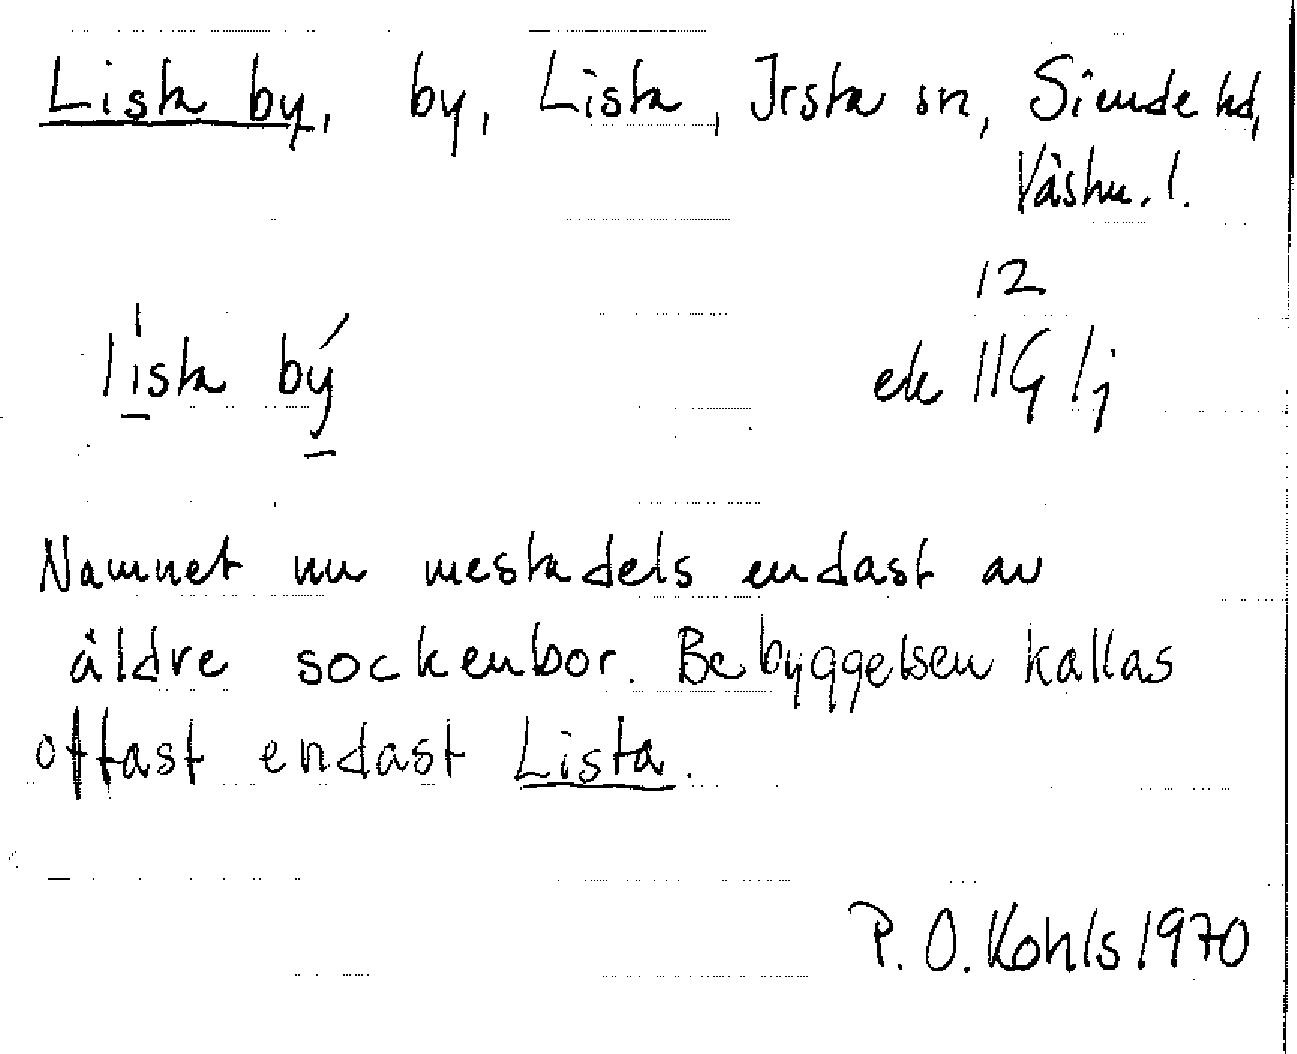 Lista by, by, Lista, Irsta sn, Siende hd,
Västm. l.
12
lista bý ek 11G 1j
Namnet nu mestadels endast av
äldre sockenbor. Bebyggelsen kallas
oftast endast Lista.
P. O. Kohls 1970